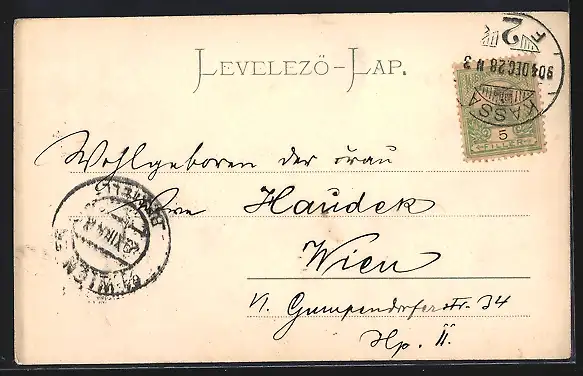 LEVELEZŐ-LAP.
KASSA
904 DEC. 28
2
5
FILLER
Wohlgeboren der Frau
Haudek
Wien
VI. Gumpendorferstr. 34
Hp. II.
WIEN